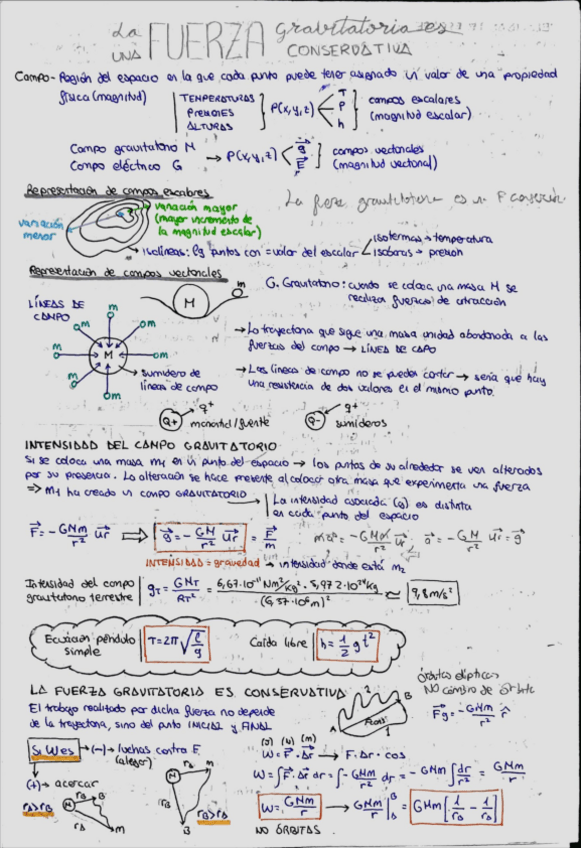 La FUERZA gravitatoria es
UNA CONSERVATIVA
Campo - Región del espacio en la que cada punto puede tener asignado un valor de una propiedad
física (magnitud)
TEMPERATURAS
PRESIONES
ALTURAS
P(x,y,z)
T
P
h
campos escalares
(magnitud escalar)
Campo gravitatorio M
Campo eléctrico G
→ P(x,y,z)
g
E
campos vectoriales
(magnitud vectorial)
Representación de campos escalares
La fuerza gravitatoria es un F conservativa
variación mayor
(mayor incremento de
la magnitud escalar)
variación
menor
isolíneas: lg puntos con = valor del escalar
isotermas → temperatura
isobaras → presión
Representación de campos vectoriales
LÍNEAS DE
CAMPO
m
M
m
G. Gravitatorio: cuando se coloca una masa M se
realiza fuerzas de atracción
→ La trayectoria que sigue una masa unidad abandonada a las
fuerzas del campo → LÍNEAS DE CAPO
→ Las líneas de campo no se pueden cortar → sería que hay
una resistencia de dos valores en el mismo punto.
sumidero de
líneas de campo
Q+ q+ manantial/fuente
Q- q+ sumideros
INTENSIDAD DEL CAMPO GRAVITATORIO
Si se coloca una masa M1 en un punto del espacio → los puntos de su alrededor se ven alterados
por su presencia. La alteración se hace presente al colocar otra masa que experimenta una fuerza
=> M1 ha creado un campo GRAVITATORIO
La intensidad asociada (g) es distinta
en cada punto del espacio
F = -GMm/r² ur ⇒ g = -GM/r² ur = F/m
ma = -GMm/r² ur a = -GM/r² ur = g
INTENSIDAD = gravedad → intensidad donde está m2
Intensidad del campo
gravitatorio terrestre
gT = GMT/RT² = 6,67·10⁻¹¹ Nm²/kg² · 5,972·10²⁴ kg / (6,37·10⁶m)² ≈ 9,8m/s²
Ecuación péndulo
simple
T = 2π√(l/g)
Caída libre
h = 1/2 g t²
LA FUERZA GRAVITATORIA ES CONSERVATIVA
El trabajo realizado por dicha fuerza no depende
de la trayectoria, sino del punto INICIAL y FINAL
A
B
1
2
órbitas elípticas
NO cambio de órbita
Fg = -GMm/r² r
Si W es
(-) → luchas contra F.
(alejar)
(+) → acercar
rA > rB
rB > rA
(J) (N) (m)
W = F · Δr → F · Δr · cos
W = ∫F · dr = ∫-GMm/r² dr = -GMm ∫dr/r² = GMm/r
W = GMm/r → GMm/r |A B = GMm [1/rB - 1/rA]
NO ÓRBITAS